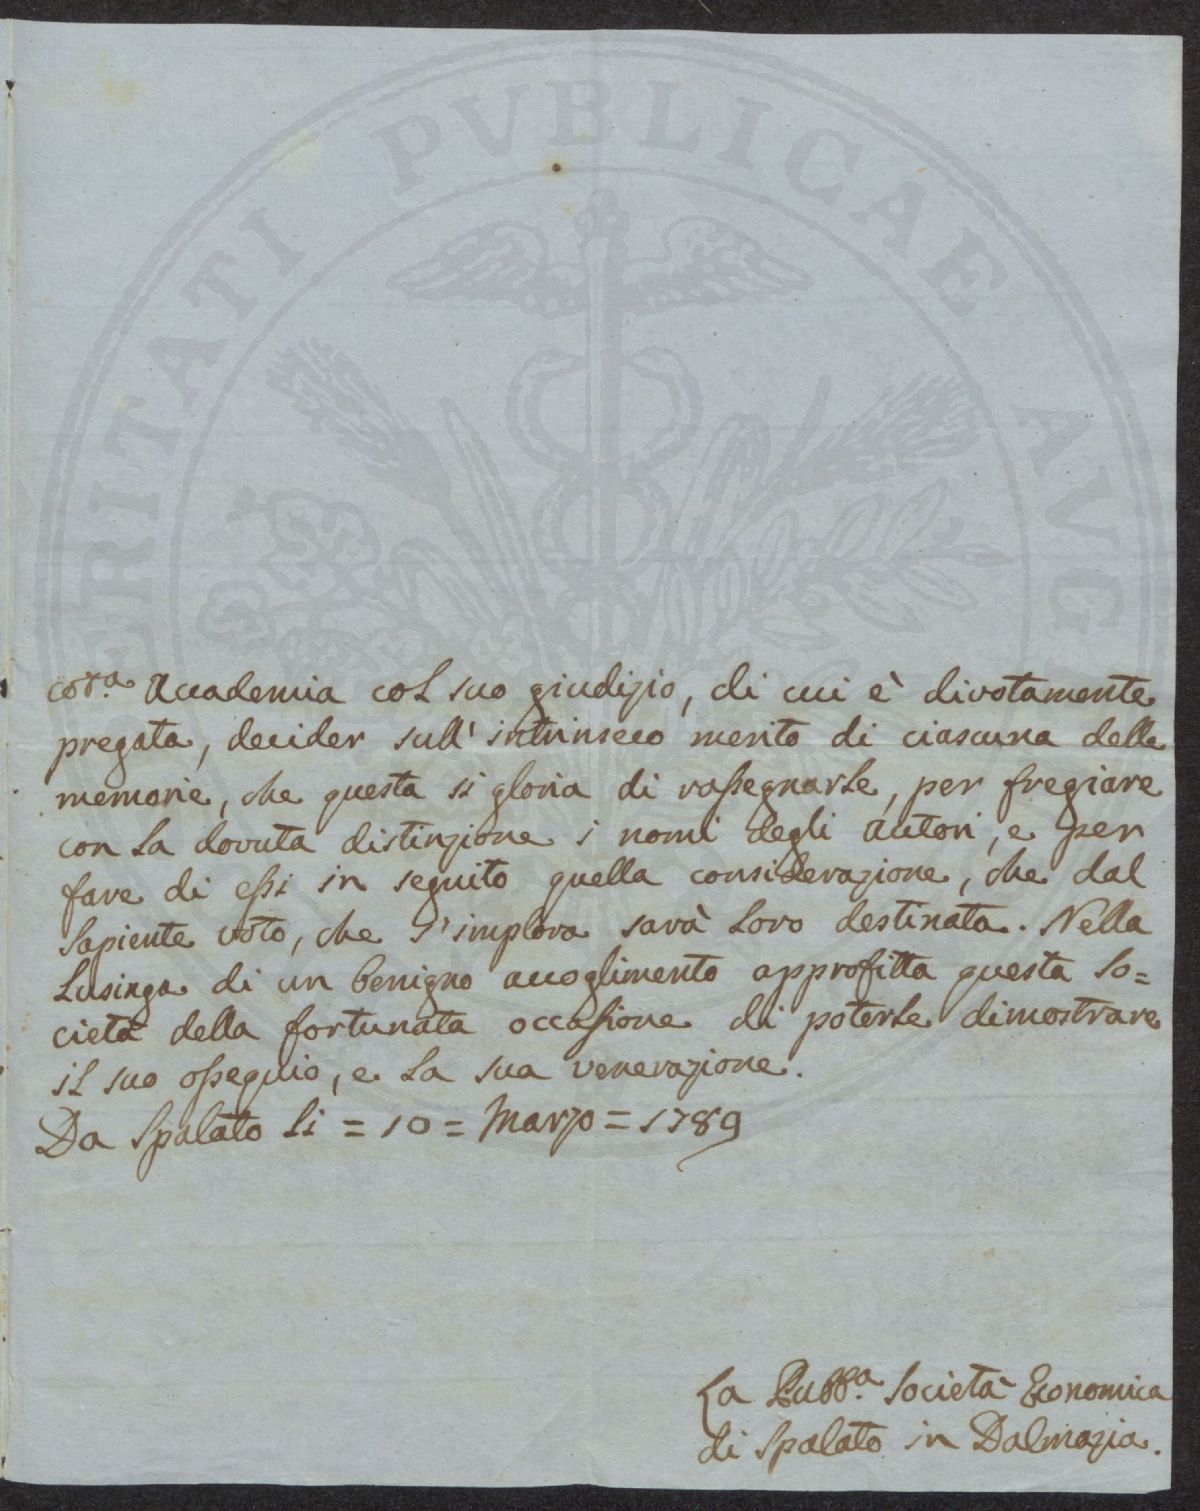 PERITATI PVBLICAE AVG
cot.ª Accademia col suo giudizio, di cui è divotamente
pregata, decider sull' intrinseco merito di ciascuna delle
memorie, che questa si gloria di rassegnarle, per fregiare
con la dovuta distinzione i nomi degli autori, e per
fare di essi in seguito quella considerazione, che dal
sapiente voto, che s'implora sarà loro destinata. Nella
Lusinga di un benigno accoglimento approfitta questa So=
cietà della fortunata occasione di poterle dimostrare
il suo ossequio, e la sua venerazione.
Da Spalato li = 10 = Marzo = 1789
La Pubb.ª Società Economica
di Spalato in Dalmazia.